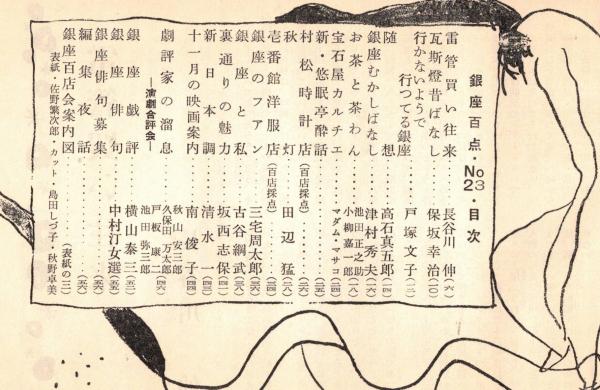 銀座百点・No23・目次
雷管買い往来 長谷川伸 (六)
瓦斯燈昔ばなし 保坂幸治 (一〇)
行かないようで行つてる銀座 戸塚文子 (一三)
随想 高石真五郎 (一四)
銀座むかしばなし 津村秀夫 (一六)
お茶と茶わん 池田正之助 小柳嘉一郎 (一八)
宝石屋カルチエ マダム・マサコ (二四)
新・悠眠亭酔話
村松時計店 (百店採点)
秋灯 田辺猛
壱番館洋服店 (百店採点)
銀座のフアン 三宅周太郎
銀座と私 古谷綱武
裏通りの魅力 坂西志保
新日本調 清水一
十一月の映画案内 南俊子
劇評家の溜息
―演劇合評会―
秋山安三郎
久保田万太郎
戸板康二
池田弥三郎
銀座戯評 横山泰三
銀座俳句 中村汀女選
銀座俳句募集
編集夜話
銀座百店会案内図 (表紙の三)
表紙・佐野繁次郎・カット・島田しづ子・秋野卓美